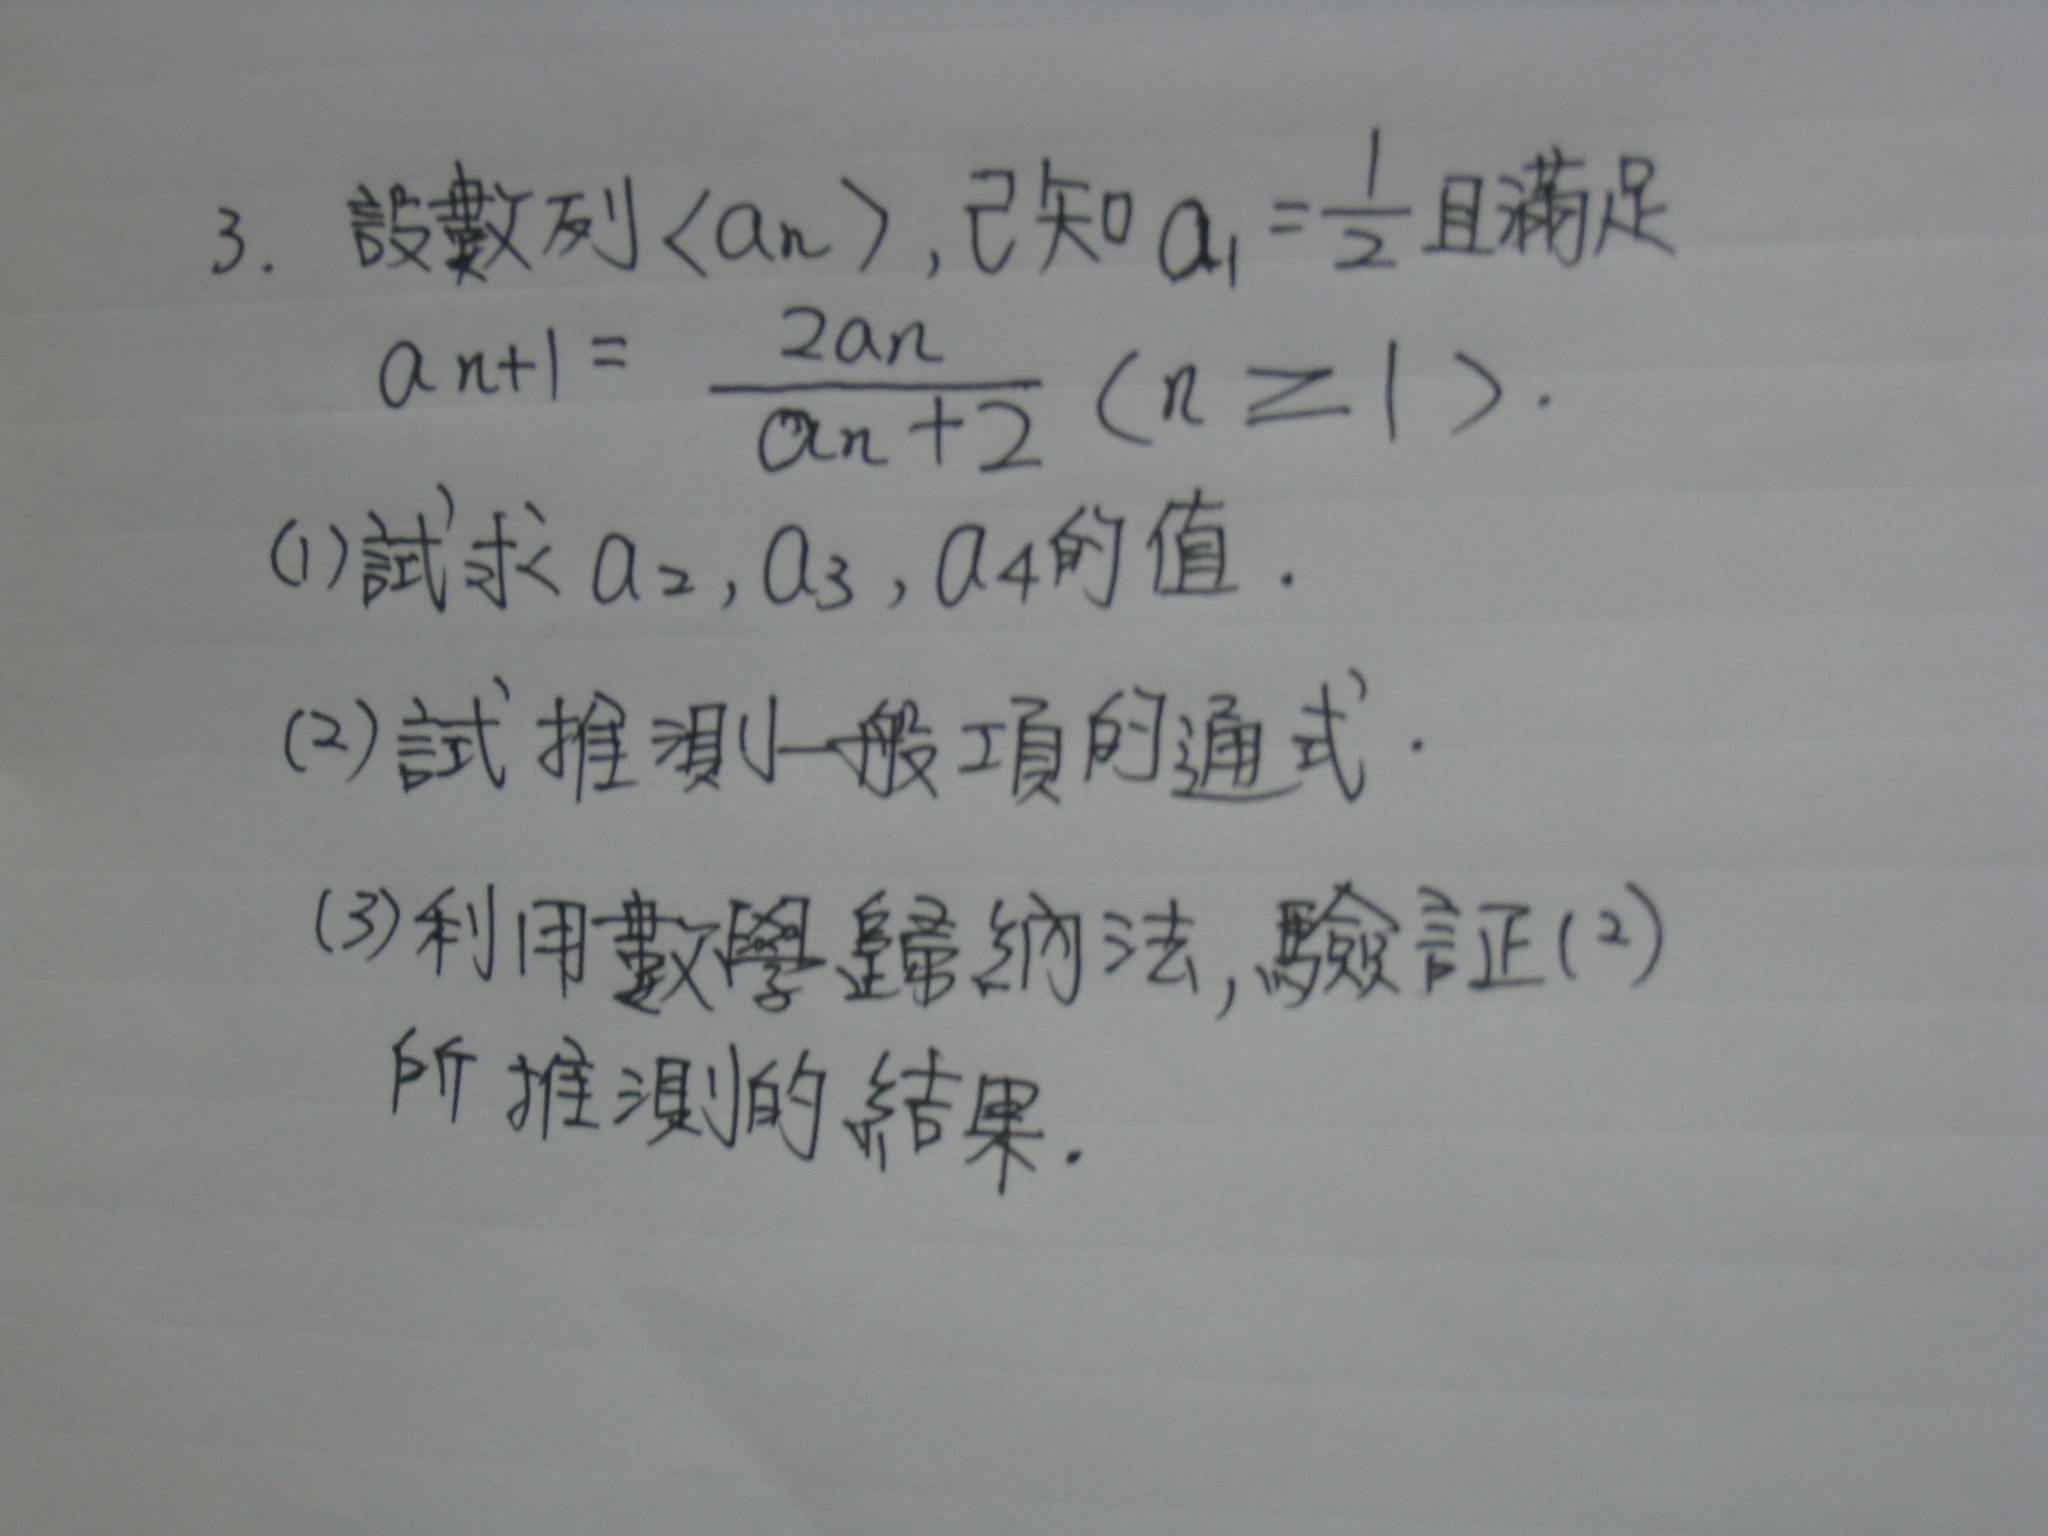 3. 設數列〈an〉,已知 a1 = 1/2 且滿足
an+1 = 2an/an+2 (n ≥ 1).
(1)試求 a2, a3, a4的值.
(2)試推測一般項的通式.
(3)利用數學歸納法,驗証(2)
所推測的結果.